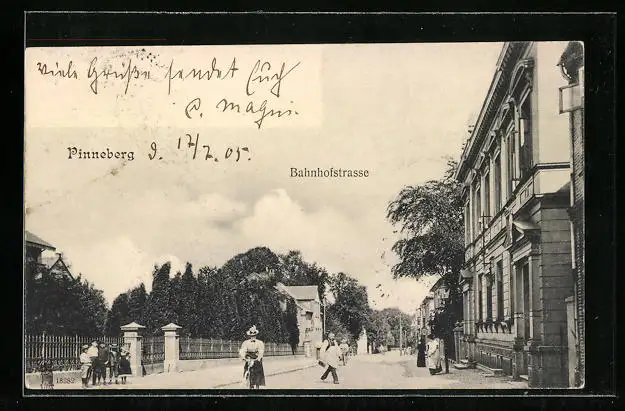 Viele Grüße sendet Euch
P. Magni.
Pinneberg d. 17/7. 05.
Bahnhofstrasse
18292